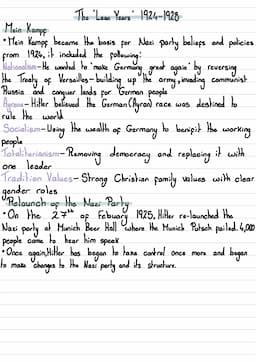 The 'Lean Years' 1924-1928
Mein Kampf
• Mein Kampf became the basis for Nazi party beliefs and policies
from 1924, it included the following:
Nationalism- He wanted to 'make Germany great again' by reversing
the Treaty of Versailles- building up the army, invading communist
Russia and conquer lands for German people
Aryans- Hitler believed the German (Aryan) race was destined to
rule the world
Socialism- Using the wealth of Germany to benifit the working
people
Totalitarianism- Removing democracy and replacing it with
one leader
Tradition Values- Strong Christian family values with clear
gender roles
Relaunch of the Nazi Party
• On the 27th of Febuary 1925, Hitler re-launched the
Nazi party at Munich Beer Hall where the Munich Putsch pailed. 4,000
people came to hear him speak
• Once again, Hitler has began to take control once more and began
to make changes to the Nazi party and its structure.